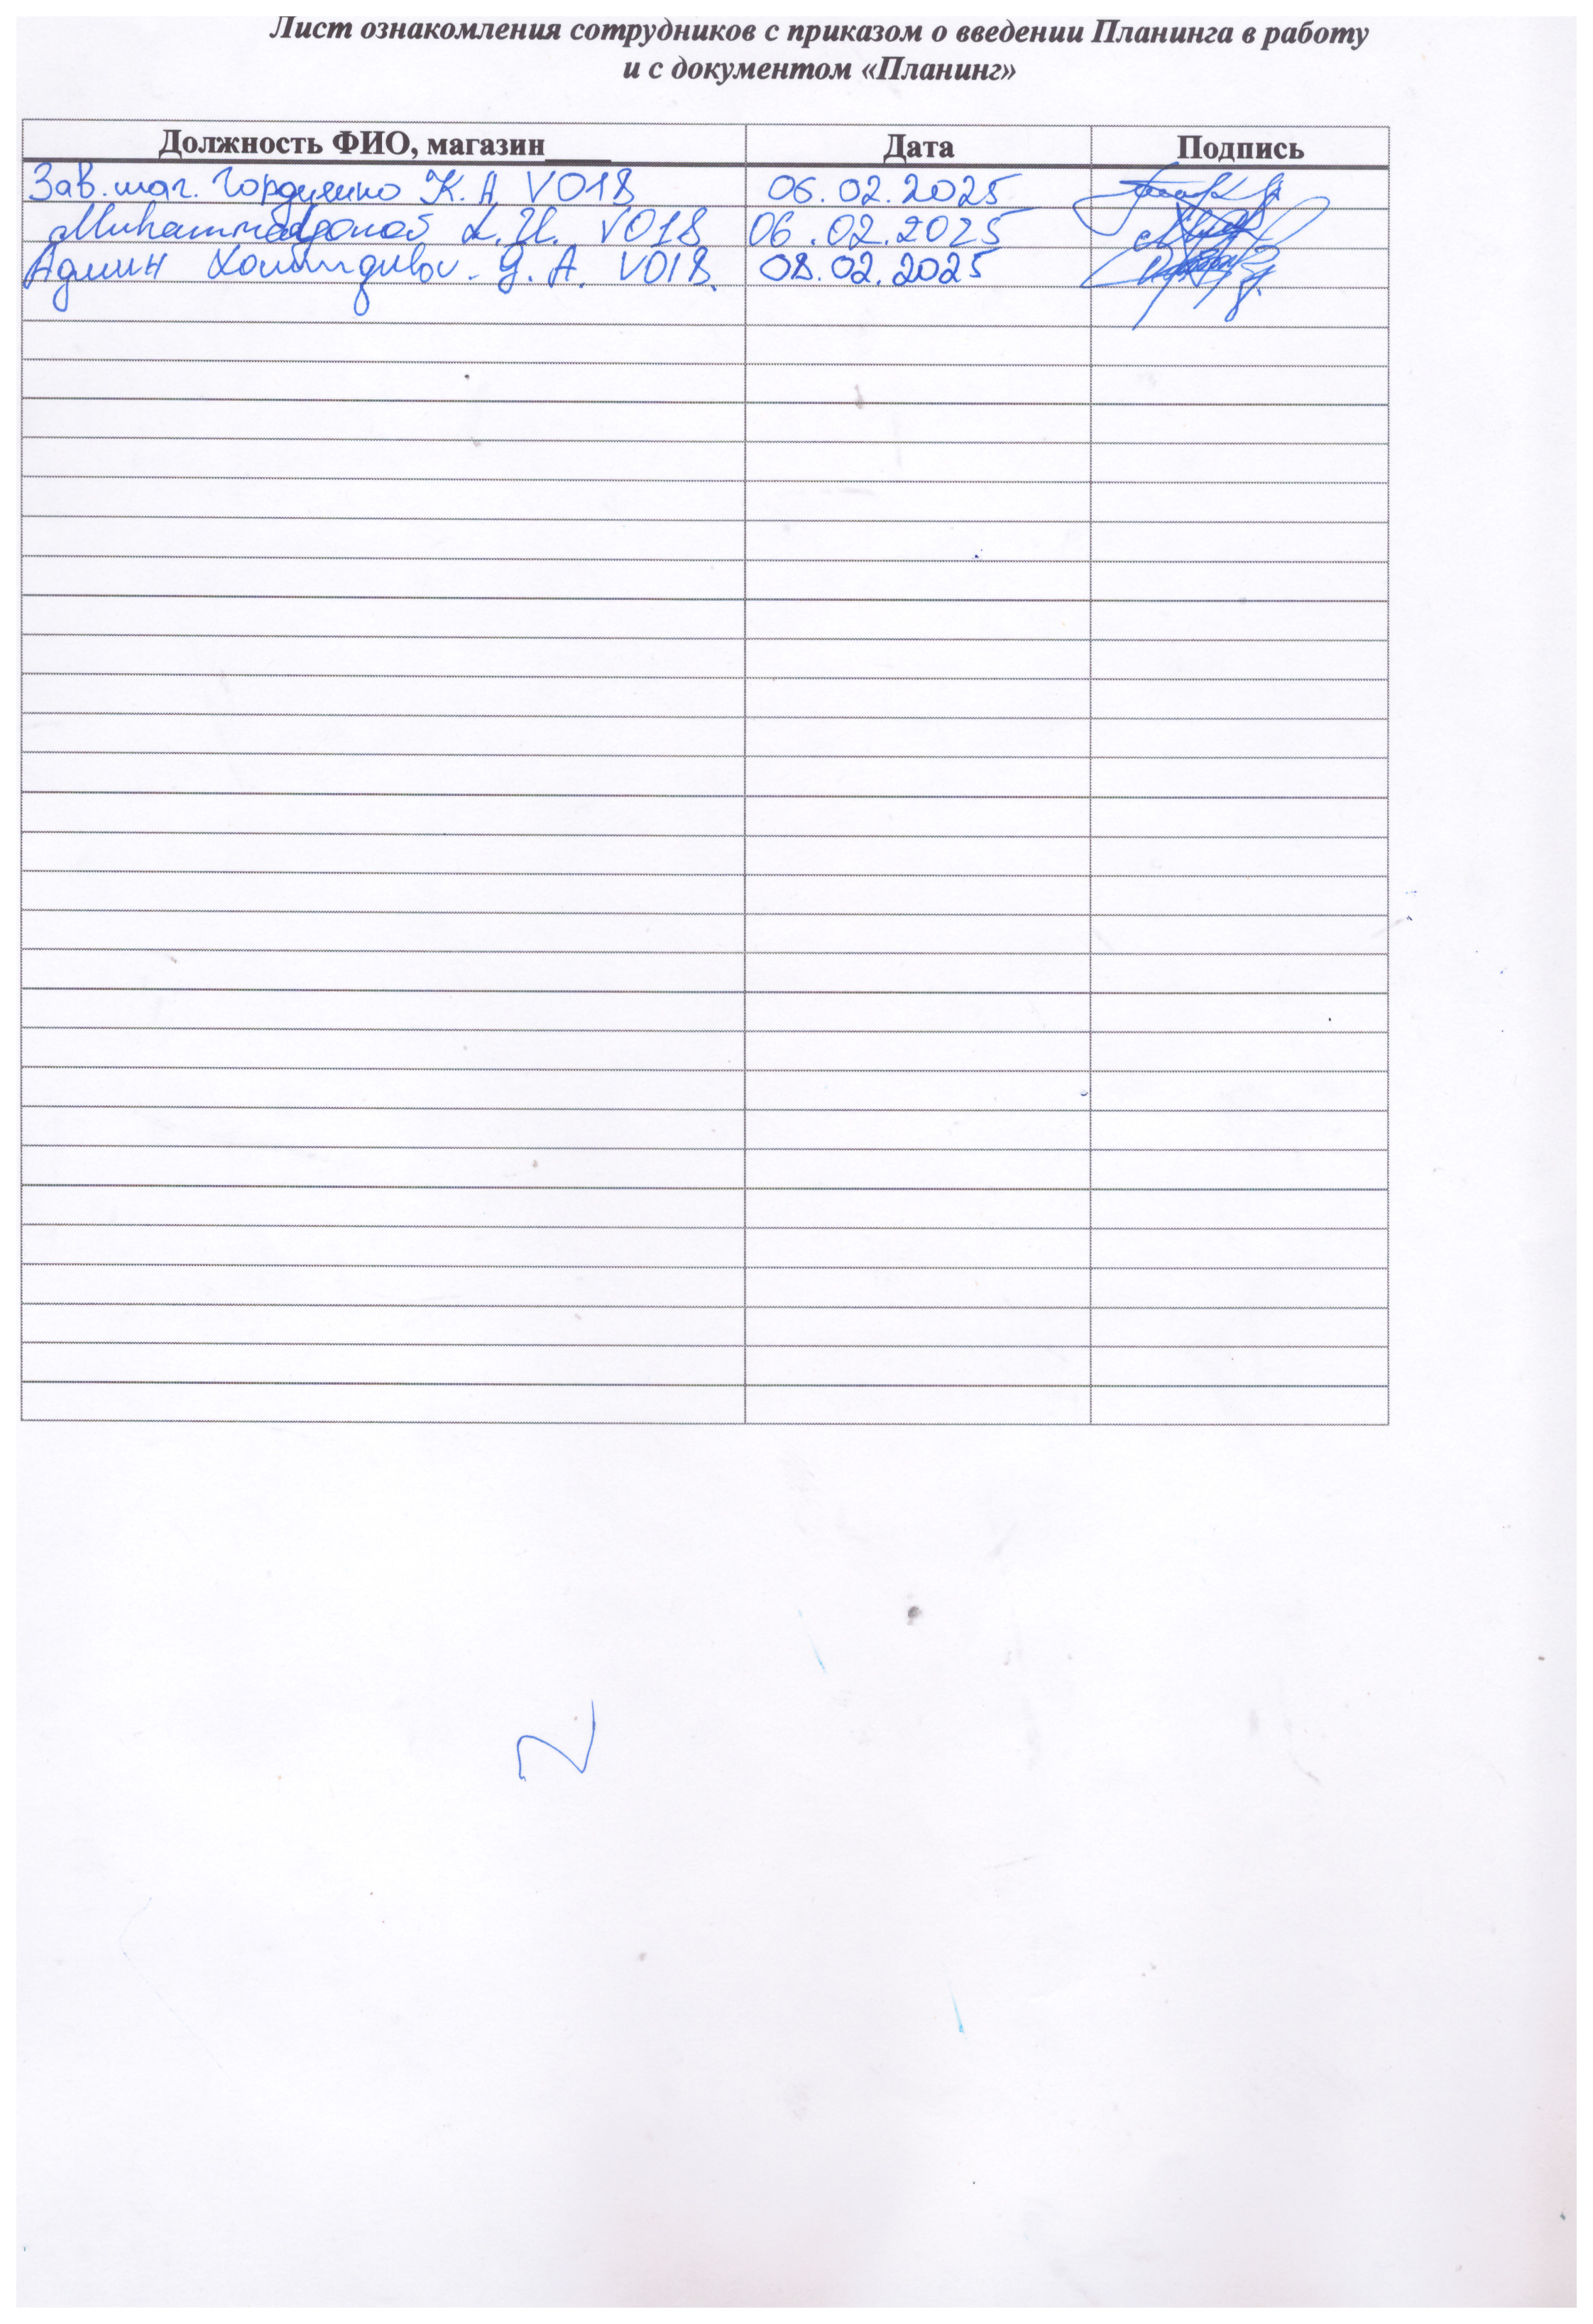 Лист ознакомления сотрудников с приказом о введении Планинга в работу
и с документом «Планинг»
Должность ФИО, магазин____ Дата Подпись
Зав. маг. Гордиенко К. А V018 06.02.2025
V018 06.02.2025
Админ Д. А. V018. 08.02.2025